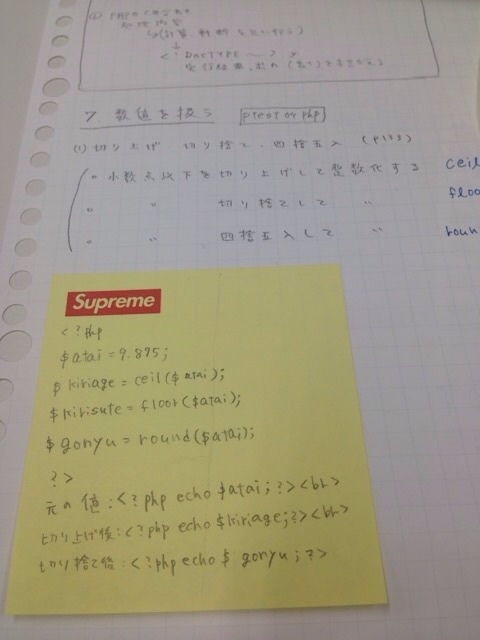 ② PHPの
処理内容
(計算、判断 など)
↓
<! DOCTYPE ~ >
7 数値を扱う ptest04.php
(1) 切り上げ・切り捨て・四捨五入 (P133)
。小数点以下を切り上げして整数化する ceil
〃 〃 切り捨てして 〃 floo
〃 〃 四捨五入して 〃 roun
Supreme
<?php
$atai = 9.875;
$kiriage = ceil($atai);
$kirisute = floor($atai);
$gonyu = round($atai);
?>
元の値:<?php echo $atai; ?><br>
切り上げ後:<?php echo $kiriage; ?><br>
切り捨て後:<?php echo $gonyu; ?>